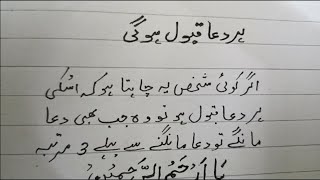 ہر دعا قبول ہوگی
اگر کوئی شخص یہ چاہتا ہو کہ اسکی
ہر دعا قبول ہو تو وہ جب بھی دعا
مانگے تو دعا مانگنے سے پہلے 3 مرتبہ
یَا اَرْحَمُ الرَّحِمِیْن